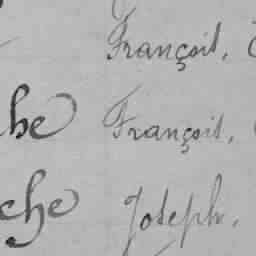 François,
he François,
che Joseph,